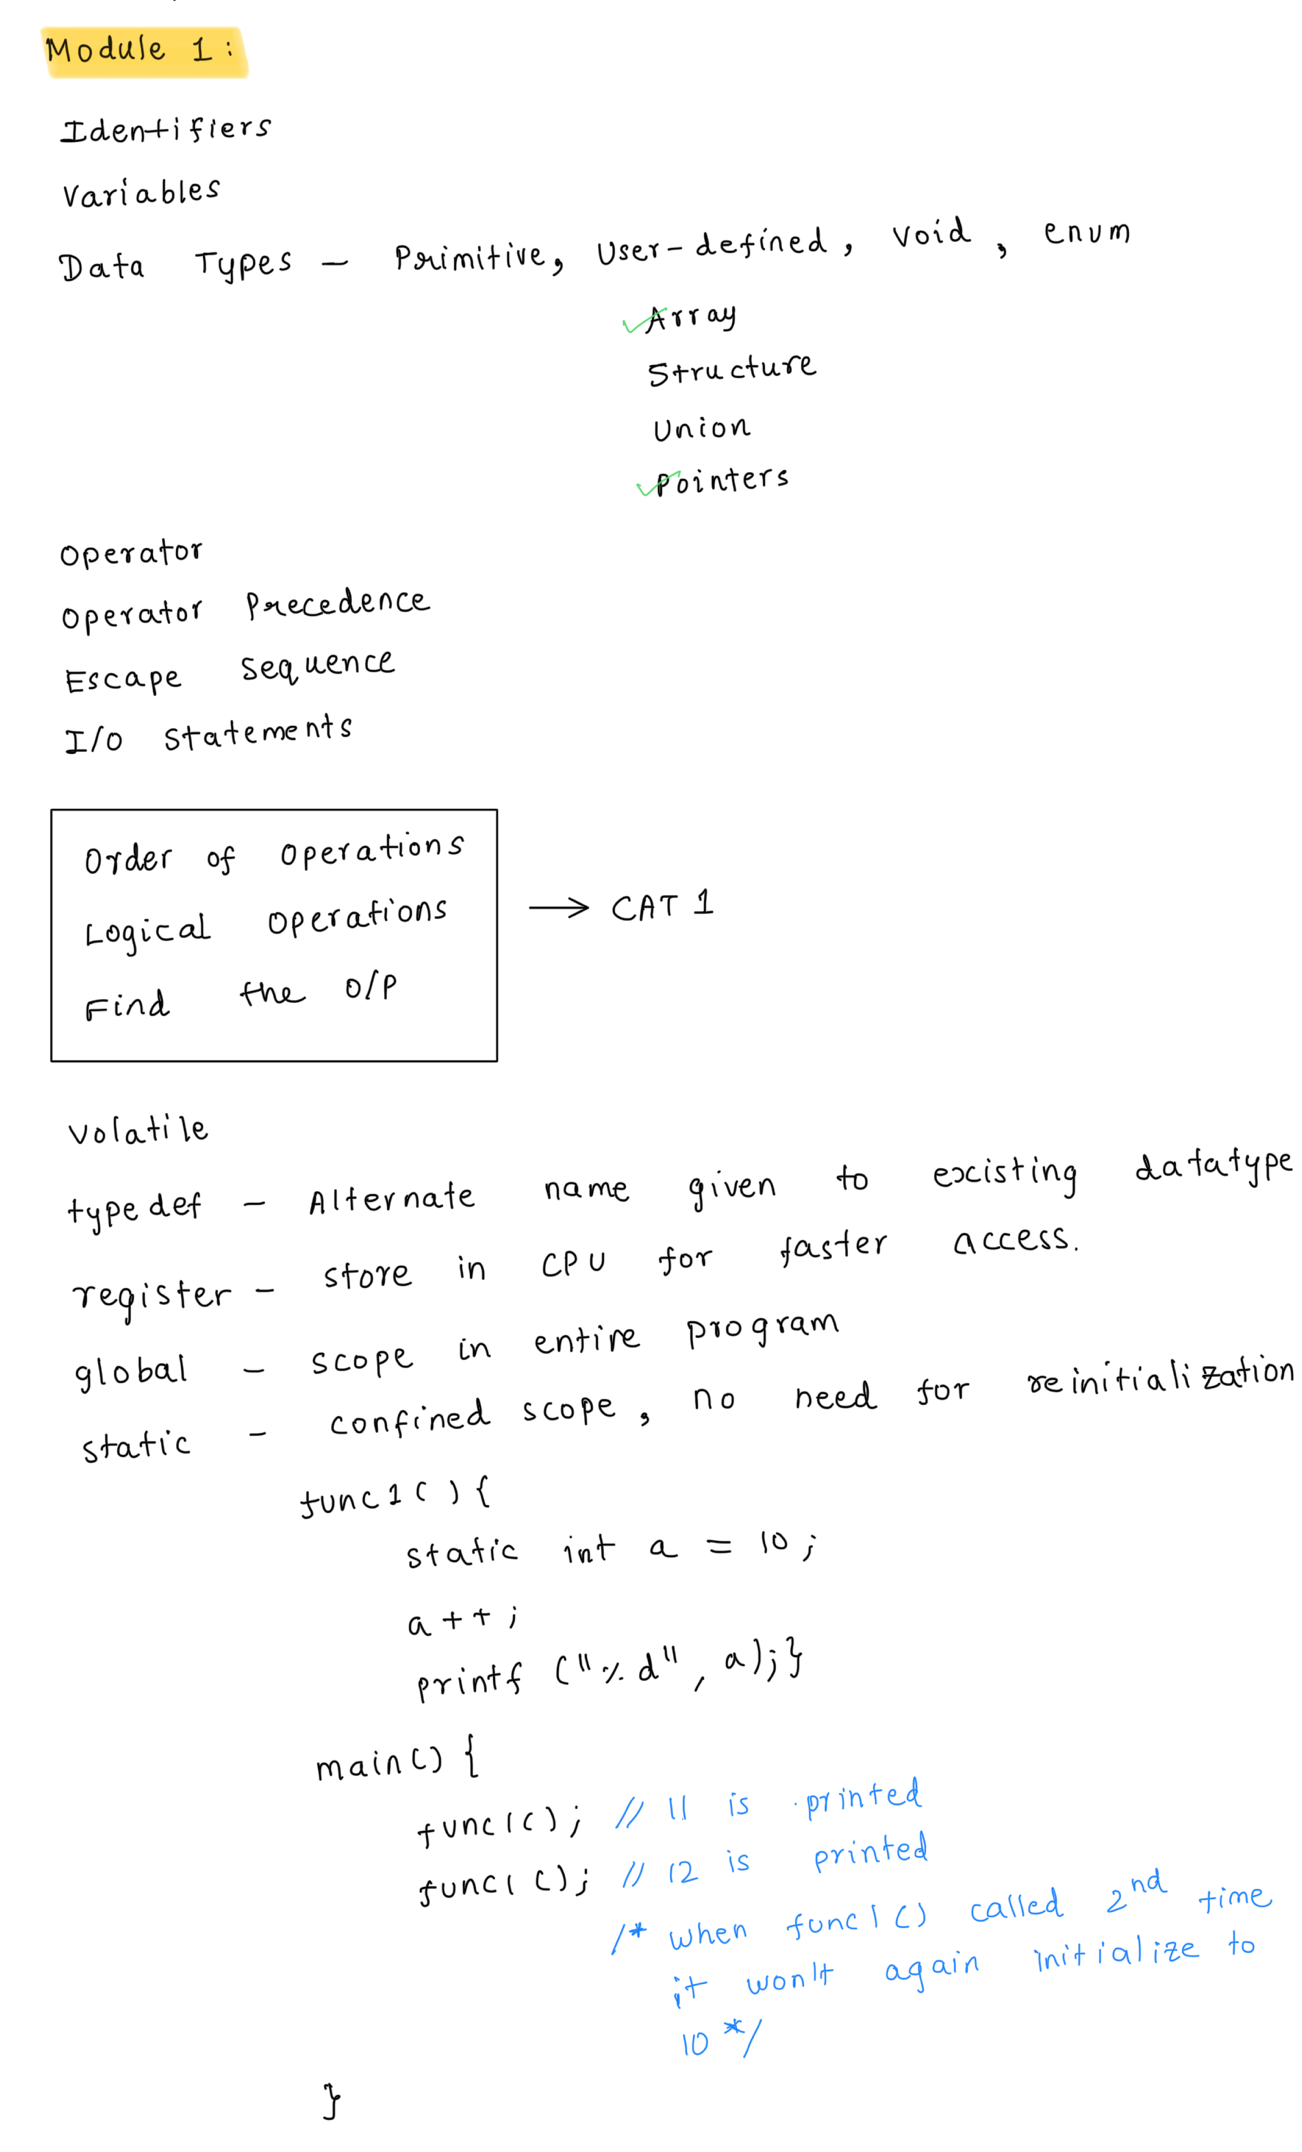 Module 1 :
Identifiers
Variables
Data Types – Primitive, User-defined, Void, enum
Array
Structure
Union
Pointers
Operator
Operator Precedence
Escape Sequence
I/O Statements
Order of Operations
Logical Operations → CAT 1
Find the O/P
Volatile
typedef – Alternate name given to existing datatype
register – store in CPU for faster access.
global – scope in entire program
static – confined scope, no need for reinitialization
func1(){
static int a = 10;
a++;
printf ("%d", a);}
main() {
func1(); // 11 is printed
func1(); // 12 is printed
/* when func1() called 2nd time
it won't again initialize to
10 */
}